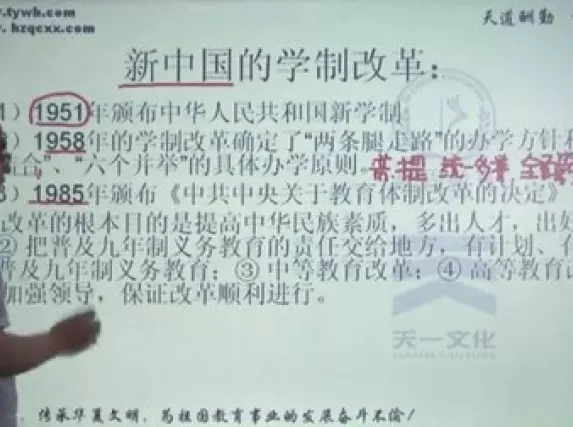 www.tywh.com
www.hzqcxx.com
天道酬勤
新中国的学制改革：
1）1951年颁布中华人民共和国新学制
）1958年的学制改革确定了“两条腿走路”的办学方针和
结合”、“六个并举”的具体办学原则。
3）1985年颁布《中共中央关于教育体制改革的决定》
改革的根本目的是提高中华民族素质，多出人才，出好
② 把普及九年制义务教育的责任交给地方，有计划、
普及九年制义务教育；③ 中等教育改革；④ 高等教育
加强领导，保证改革顺利进行。
天一文化
传承华夏文明，为祖国教育事业的发展奋斗不渝！